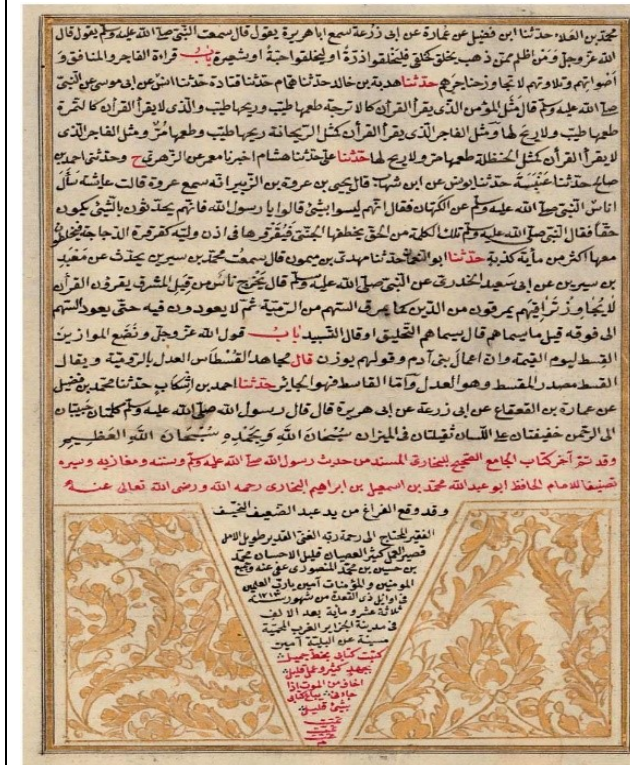 محمد بن العلاء حدثنا ابن فضيل عن عمارة عن ابى زرعة سمع ابا هريرة يقول قال سمعت النبى صلى الله عليه وسلم يقول قال
الله عز وجل ومن اظلم ممن ذهب يخلق كخلقى فليخلقوا ذرة او ليخلقوا حبة او شعيرة باب قراءة الفاجر والمنافق و
اصواتهم وتلاوتهم لا تجاوز حناجرهم حدثنا هدبة بن خالد حدثنا همام حدثنا قتادة حدثنا انس عن ابى موسى عن النبى
صلى الله عليه وسلم قال مثل المؤمن الذى يقرأ القرآن كالاترجة طعمها طيب وريحها طيب والذى لا يقرأ القرآن كالتمرة
طعمها طيب ولا ريح لها ومثل الفاجر الذى يقرأ القرآن كمثل الريحانة ريحها طيب وطعمها مر ومثل الفاجر الذى
لا يقرأ القرآن كمثل الحنظلة طعمها مر ولا ريح لها حدثنا على حدثنا هشام اخبرنا معمر عن الزهرى ح وحدثنى احمد بن
صالح حدثنا عنبسة حدثنا يونس عن ابن شهاب قال يحيى بن عروة بن الزبير انه سمع عروة قالت عائشة سأل
اناس النبى صلى الله عليه وسلم عن الكهان فقال انهم ليسوا بشئ قالوا يا رسول الله فانهم يحدثون بالشئ يكون
حقا فقال النبى صلى الله عليه وسلم تلك الكلمة من الحق يخطفها الجنى فيقرقرها فى اذن وليه كقرقرة الدجاجة فيخلطون
معها اكثر من ماية كذبة حدثنا ابو النعمان حدثنا مهدى بن ميمون قال سمعت محمد بن سيرين يحدث عن معبد
بن سيرين عن ابى سعيد الخدرى عن النبى صلى الله عليه وسلم قال يخرج ناس من قبل المشرق يقرؤن القرآن
لا يجاوز تراقيهم يمرقون من الدين كما يمرق السهم من الرمية ثم لا يعودون فيه حتى يعود السهم
الى فوقه قيل ما سيماهم قال سيماهم التحليق او قال التسبيد باب قول الله عز وجل ونضع الموازين
القسط ليوم القيمة وان اعمال بنى آدم وقولهم يوزن قال مجاهد القسطاس العدل بالرومية ويقال
القسط مصدر المقسط وهو العدل واما القاسط فهو الجائر حدثنا احمد بن اشكاب حدثنا محمد بن فضيل
عن عمارة بن القعقاع عن ابى زرعة عن ابى هريرة قال قال رسول الله صلى الله عليه وسلم كلمتان حبيبتان
الى الرحمن خفيفتان على اللسان ثقيلتان فى الميزان سبحان الله وبحمده سبحان الله العظيم
وقد تم آخر كتاب الجامع الصحيح للبخارى المسند من حديث رسول الله صلى الله عليه وسلم وسننه ومغازيه وسيره
تصنيفا للامام الحافظ ابو عبد الله محمد بن اسمعيل بن ابراهيم البخارى رحمه الله ورضى الله تعالى عنه
وقد وقع الفراغ من يد عبد الضعيف النحيف
الفقير المحتاج الى رحمة ربه الغنى القدير طويل الامل
قصير العمل كثير العصيان قليل الاحسان محمد
بن حسين بن محمد المنصورى عفى عنه وجميع
المومنين والمؤمنات آمين يارب العلمين
فى اوايل ذى القعدة من شهور سنة ١٣١٣
ثلاثة عشر وماية بعد الالف
فى مدينة الجزاير الغرب المحمية
مسينة عن البلية آمين
كتبت كتابى بخط جميل
بجهد كثير وعمل قليل
اخاف من الموت اذا
جاءنى يباع كتابى
بشئ قليل
تمت
تمت
تمت
م